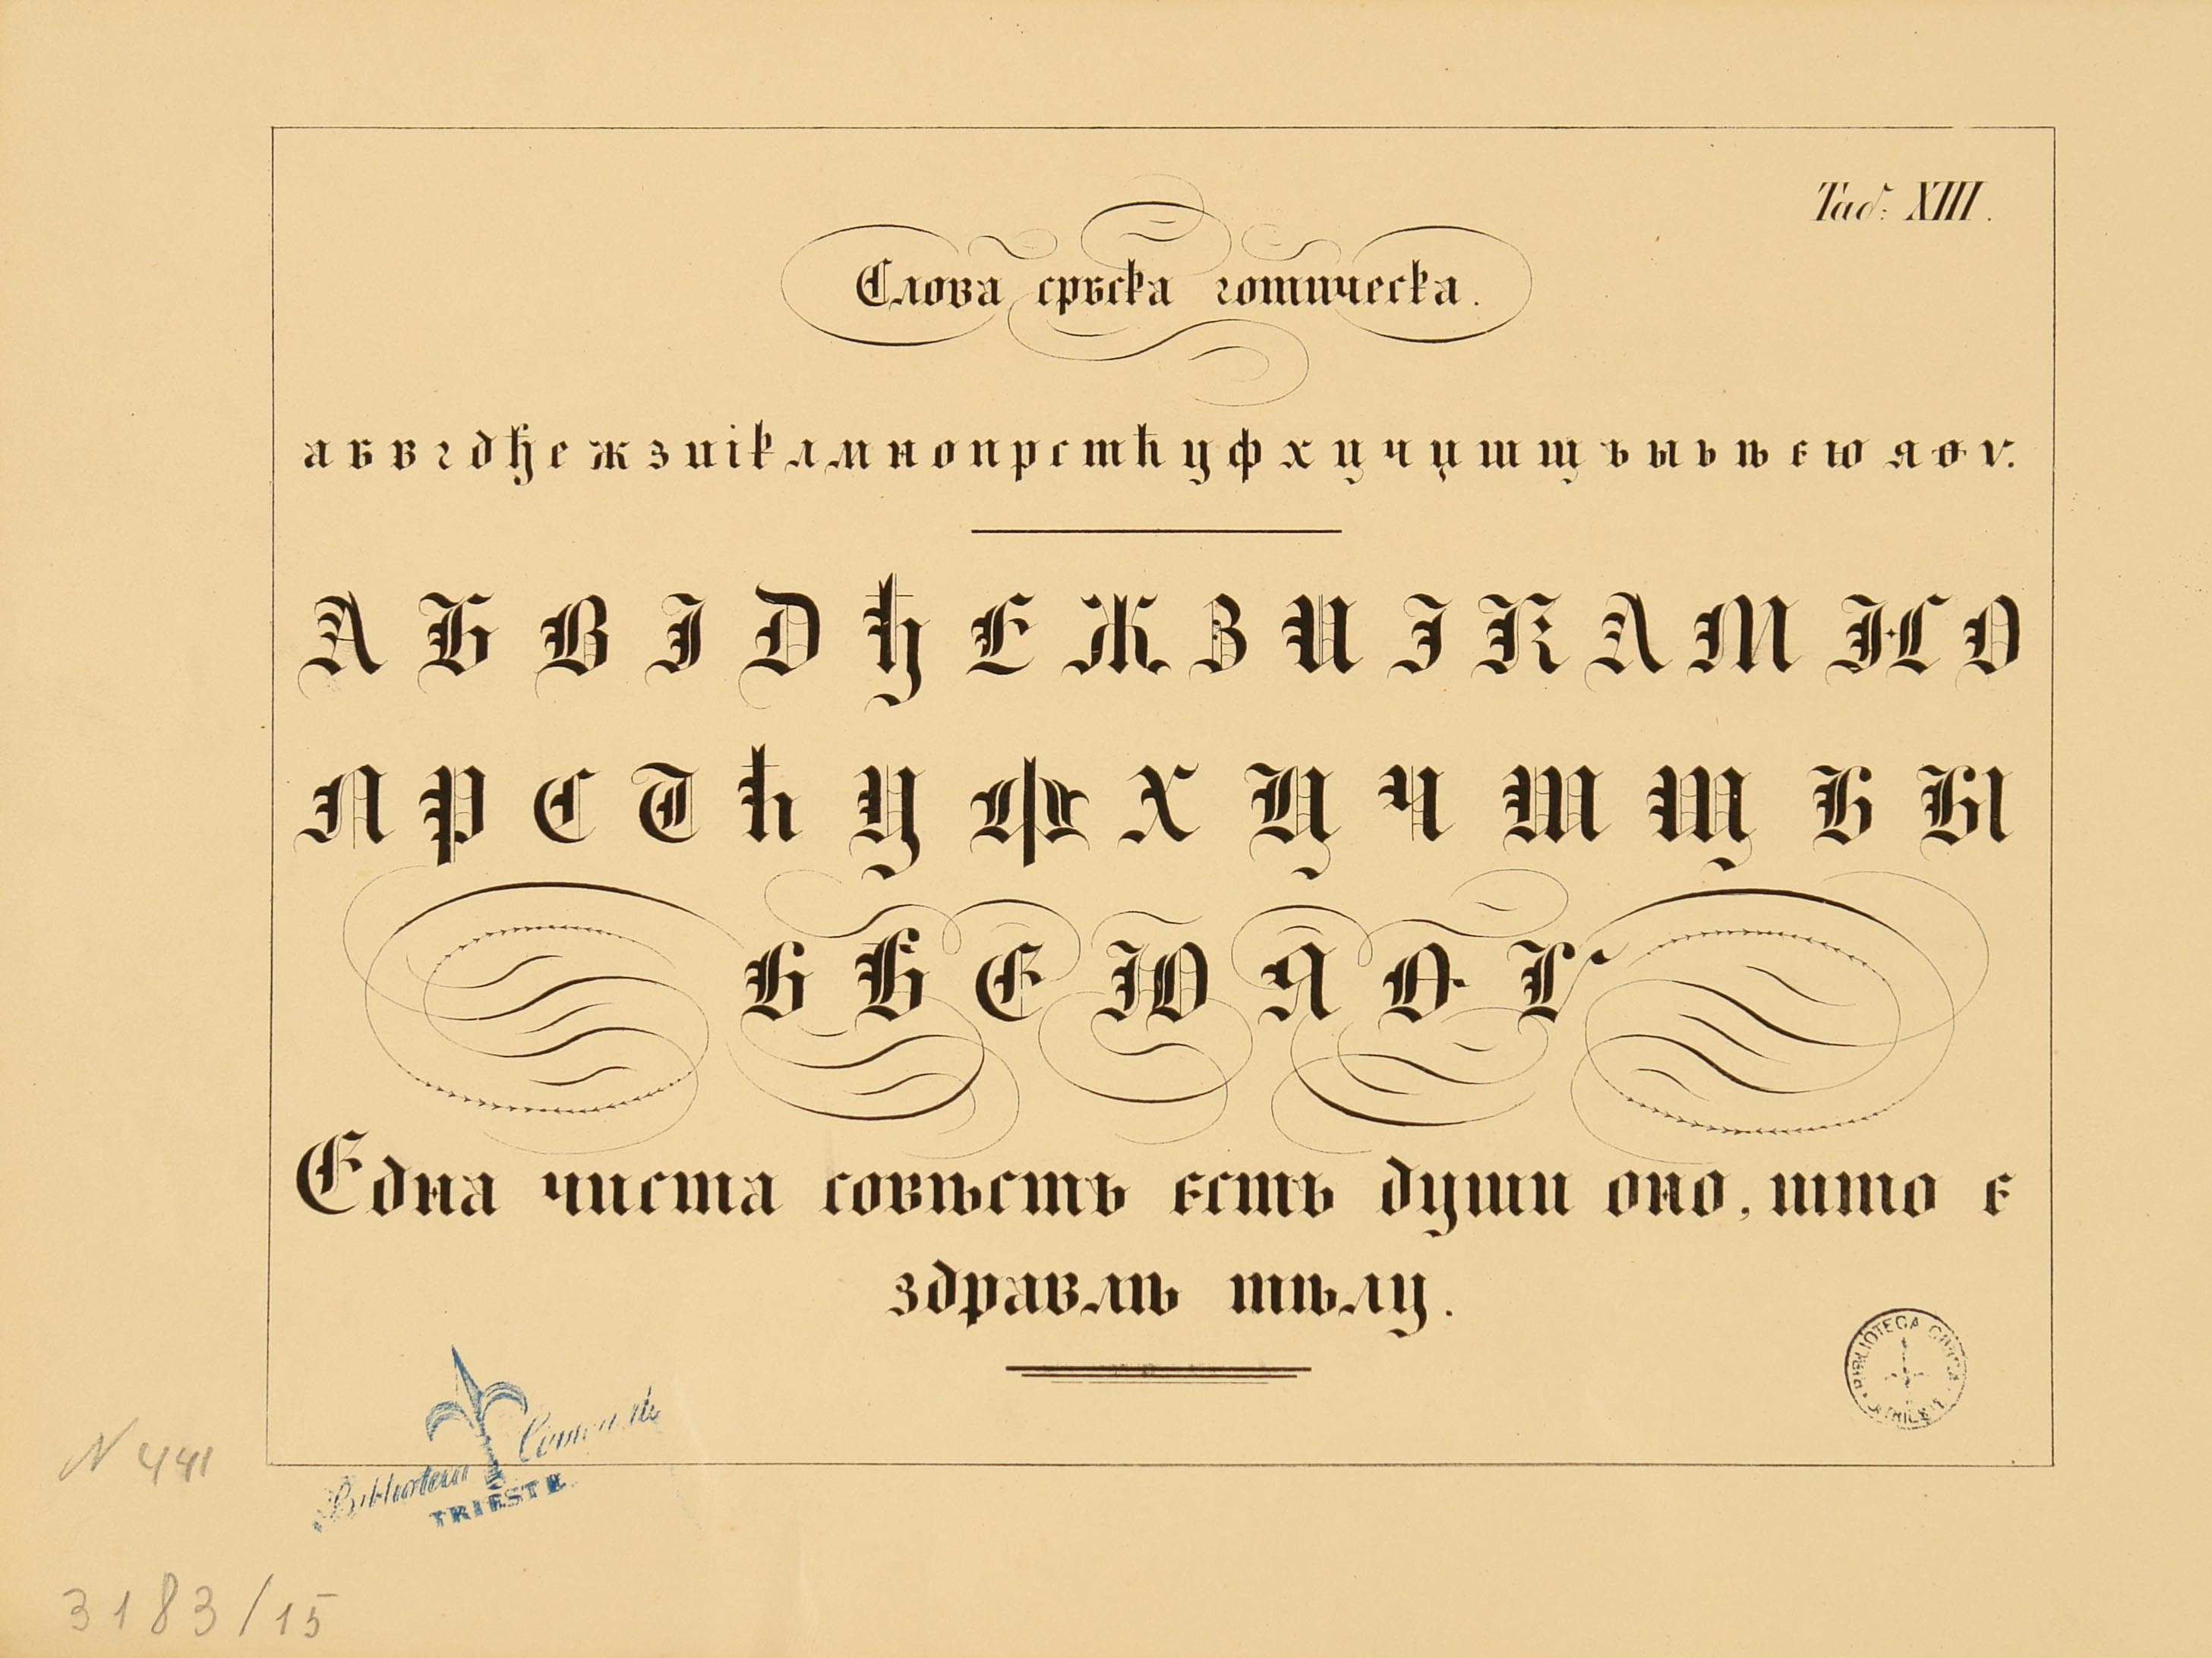 Таб: XIII.
Слова србска готическа.
а б в г д ђ е ж з и і к л м н о п р с т ћ у ф х ц ч џ ш щ ъ ы ь ѣ є ю я ѳ ѵ.
А Б В Г Д Ђ Е Ж З И І К Л М Н О
П Р С Т Ћ У Ф Х Ц Ч Ш Щ Ъ Ы
Ь Ѣ Є Ю Я Ѳ Ѵ
Една чиста совѣсть єсть души оно, што є
здравлѣ тѣлу.
BIBLIOTECA CIVICA TRIESTE
Biblioteca Comunale
TRIESTE
N 441
3183/15